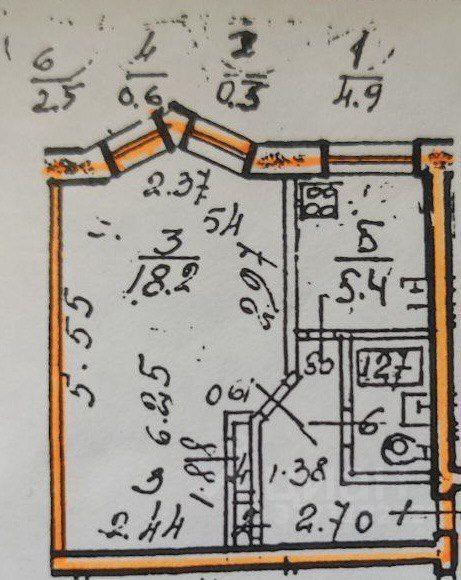 6 4 2 1
2.5 0.6 0.3 4.9
2.37
54
3
18.2
5
5.4
2.97
5.55
50
127
6.25
061
6
1.88
4
1.38
2.44
2
2.70
1